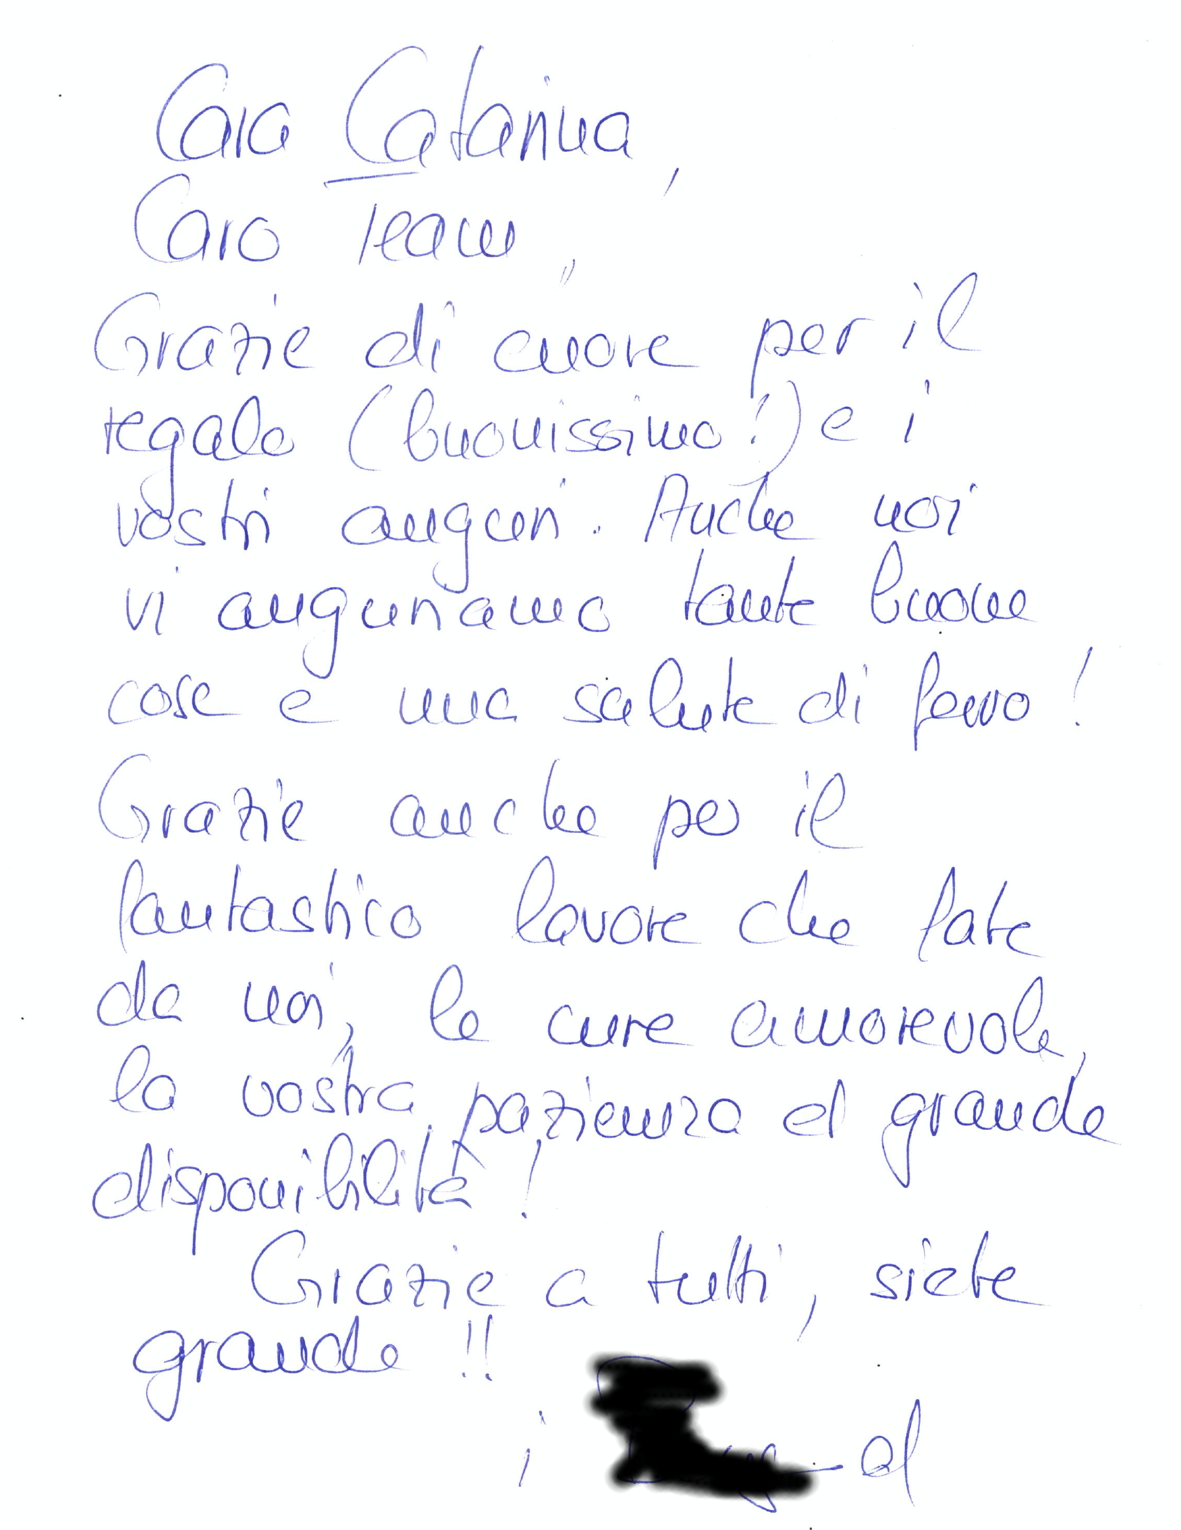 Cara Catarina,
Caro team,
Grazie di cuore per il
regalo (buonissimo!) e i
vostri auguri. Anche noi
vi auguriamo tante buone
cose e una salute di ferro!
Grazie anche per il
fantastico lavore che fate
da noi, le cure amorevole,
la vostra pazienza et grande
disponibilità!
Grazie a tutti, siete
grande!!
i